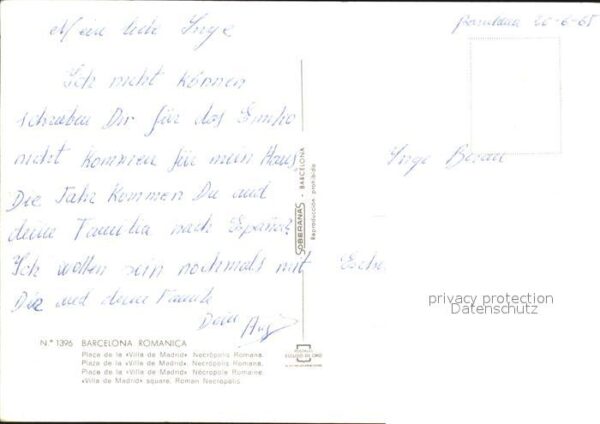 Barcelona 20-6-65
Mein liebe Inge
Ich nicht können
schreiben Dir für das Simko
nicht kommen für mein Haus,
Die Jahr kommen Du und
deine Familia nach España?
Ich wollen sein nochmals mit
Dir und deine Familie
Dein
Inge
N.º 1396 BARCELONA ROMANICA
Plaza de la «Villa de Madrid». Necrópolis Romana.
Plaça de la «Villa de Madrid». Necròpolis Romana.
Place de la «Villa de Madrid». Nécropole Romaine.
«Villa de Madrid» square. Roman Necropolis.
SOBERANAS - BARCELONA
Reproducción prohibida
POSTALES
ESCUDO DE ORO
privacy protection
Datenschutz